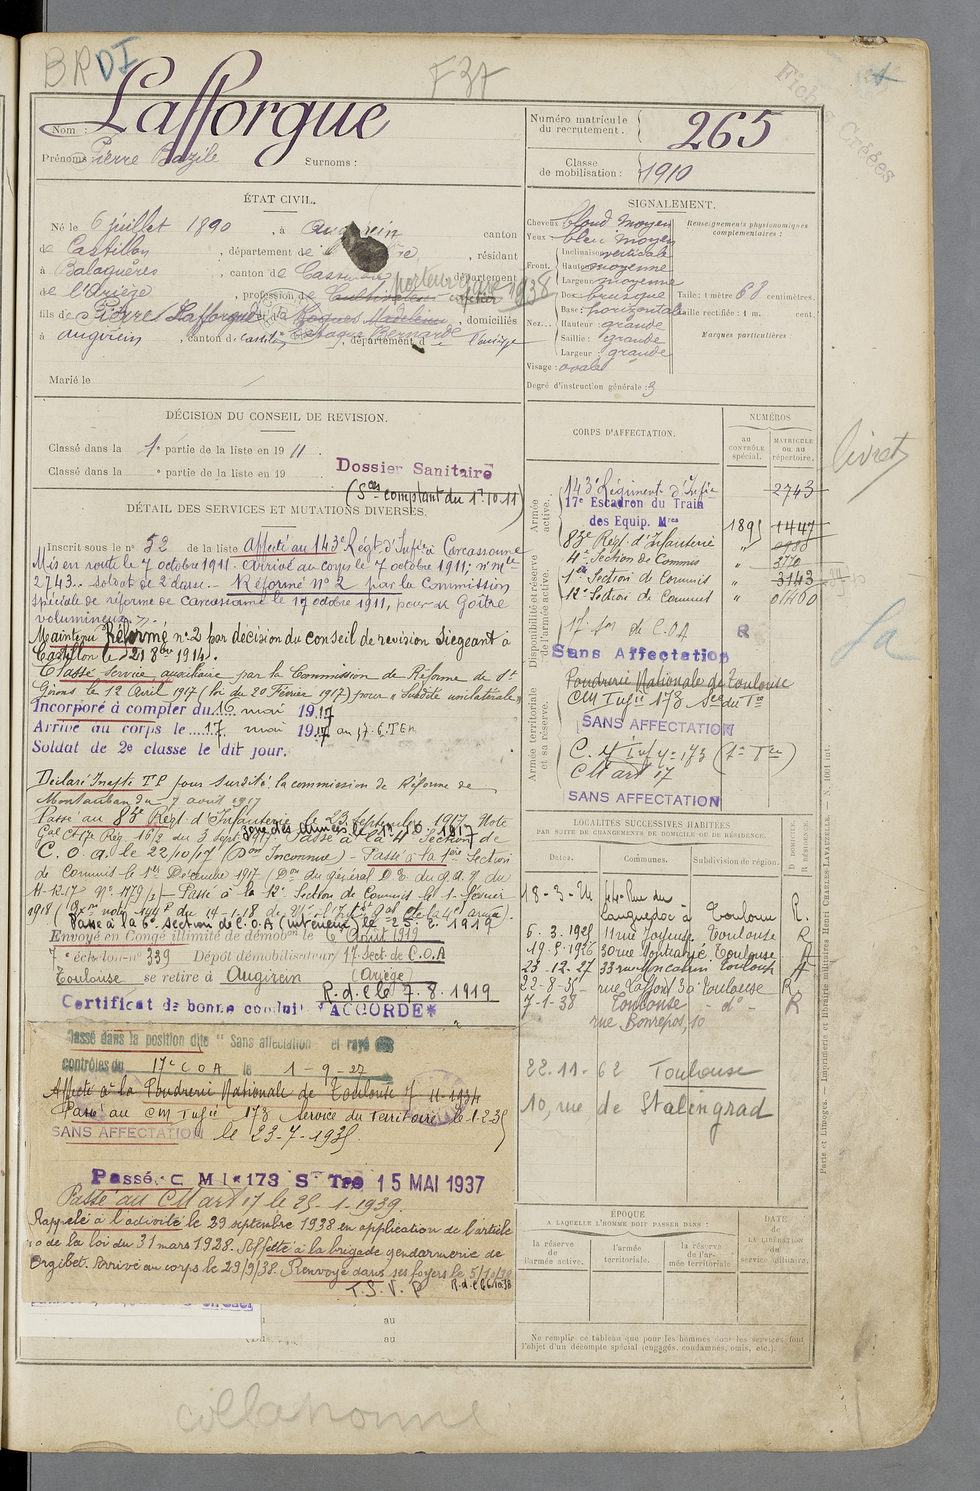 BRDI
F 37
Fiches Créées
Lafforgue
Nom :
Prénoms Pierre Bazile Surnoms :
Numéro matricule du recrutement : 265
Classe de mobilisation : 1910
ÉTAT CIVIL.
Né le 6 juillet 1890, à Augirein canton
de Castillon, département de l'Ariège, résidant
à Balaguères, canton de département
de l'Ariège, profession de Cultivateur
porteur gare 1938
fils de Pierre Lafforgue et de Rogues Madeleine, domiciliés
Lafague Bernarde
à Augirein, canton de Castillon, département de l'Ariège
Marié le
SIGNALEMENT.
Cheveux blond moyen
Yeux bleu moyen
Front. Inclinaison verticale
Hauteur moyenne
Largeur moyenne
Nez... Dos brusque
Base : horizontale
Hauteur : grande
Saillie : grande
Largeur : grande
Visage : ovale
Renseignements physionomiques complémentaires :
Taille : 1 mètre 68 centimètres.
Taille rectifiée : 1 m. cent.
Marques particulières :
Degré d'instruction générale : 3
DÉCISION DU CONSEIL DE REVISION.
Classé dans la 1e partie de la liste en 1911.
Classé dans la e partie de la liste en 19
Dossier Sanitaire
(Sces comptant du 1.10.11)
DÉTAIL DES SERVICES ET MUTATIONS DIVERSES.
Inscrit sous le n° 52 de la liste Affecté au 143e Régt d'Infie à Carcassonne
Mis en route le 7 octobre 1911. Arrivé au corps le 7 octobre 1911; n° mle
2743. soldat de 2e classe. Réformé n° 2 par la Commission
spéciale de réforme de Carcassonne le 17 octobre 1911, pour Goître
volumineux.
Maintenu Réformé n° 2 par décision du conseil de revision siégeant à
Castillon le 21 8bre 1914.
Classé service auxiliaire par la Commission de Réforme de St
Girons le 12 Avril 1917 (loi du 20 Février 1917) pour surdité unilatérale
Incorporé à compter du 16 mai 1917
Arrivé au corps le 17 mai 1917 au 17e E.T.E.M
Soldat de 2e classe le dit jour.
Déclaré Inapte T.P. pour surdité la commission de Réforme de
Montauban du 7 août 1917
Passé au 83e Régt d'Infanterie le 23 septembre 1917. Note
zone des Armées le 1.10.1917
du 3 sept 1917. Passé à la 4e Section de
C.O.A. le 22/10/17 (Don Inconnue) - Passé à la 1ère Section
de Commis le 1er Décembre 1917 (Don du général D.E. du G.A.
11-12-17 n° 1779) - Passé à la 12e Section de Commis le 1 février
1918
Passé à la 6e section de C.O.A (Intérieur) le 25. 2. 1919
Envoyé en Congé illimité de démobon le 6 Août 1919
7e échelon n° 339 Dépôt démobilisateur 17 Sect. de C.O.A
Toulouse se retire à Augirein (Ariège)
R.d.c le 7.8.1919
Certificat de bonne conduite *ACCORDÉ*
Classé dans la position dite "Sans affectation" et rayé des
contrôles du 17e C O A le 1-9-27
Affecté à la Poudrerie Nationale de Toulouse 7-11-1934
Passé au CM Infie 173 Service du Territoire le 1.2.35
SANS AFFECTATION le 23-7-1935.
Passé C M Ie 173 S Tre 15 MAI 1937
Passé au CM art 17 le 25-1-1939.
Rappelé à l'activité le 29 septembre 1938 en application de l'article
40 de la loi du 31 mars 1928. Affecté à la brigade gendarmerie de
Orgibet. Arrivé au corps le 29/9/38. Renvoyé dans ses foyers le 5/10/38
T.S.V.P R.d.c 6.10.38
au
au
CORPS D'AFFECTATION.
NUMÉROS
au contrôle spécial.
MATRICULE ou au répertoire.
Armée active.
Disponibilité et réserve de l'armée active.
Armée territoriale et sa réserve.
143e Régiment d'Infie 2743
17e Escadron du Train
des Equip. Mres 1895 1447
83e Régt d'Infanterie "
4e Section de Commis " 3770
1ère Section de Commis " 3143
12e Section de Commis " 01460
17e Son de C.O.A
Sans Affectation
Poudrerie Nationale de Toulouse
CM Infie 173 Sce du Tre
SANS AFFECTATION
C. M Infie 173 (Sce Tre)
CM art 17
SANS AFFECTATION
livret
La
LOCALITÉS SUCCESSIVES HABITÉES
PAR SUITE DE CHANGEMENTS DE DOMICILE OU DE RÉSIDENCE.
Dates. Communes. Subdivision de région. D. DOMICILE R. RÉSIDENCE.
18-3-24 44 Rue du
Languedoc à Toulouse R.
6. 3. 1925 11 rue Joyeuse Toulouse R
19.5.1926 30 rue Toulouse
23-12-27 33 rue Moncassin Toulouse
22-8-35 rue Laffont 3 à Toulouse R.
7-1-38 Toulouse - do - R
rue Bonrepos, 10
22.11-62 Toulouse
10, rue de Stalingrad
ÉPOQUE
A LAQUELLE L'HOMME DOIT PASSER DANS :
la réserve de l'armée active.
l'armée territoriale.
la réserve de l'armée territoriale
DATE de LA LIBÉRATION du service militaire.
Ne remplir ce tableau que pour les hommes dont les services font
l'objet d'un décompte spécial (engagés, condamnés, omis, etc.).
Paris et Limoges. — Imprimerie et librairie militaires Henri CHARLES-LAVAUZELLE. N. 1001 int.